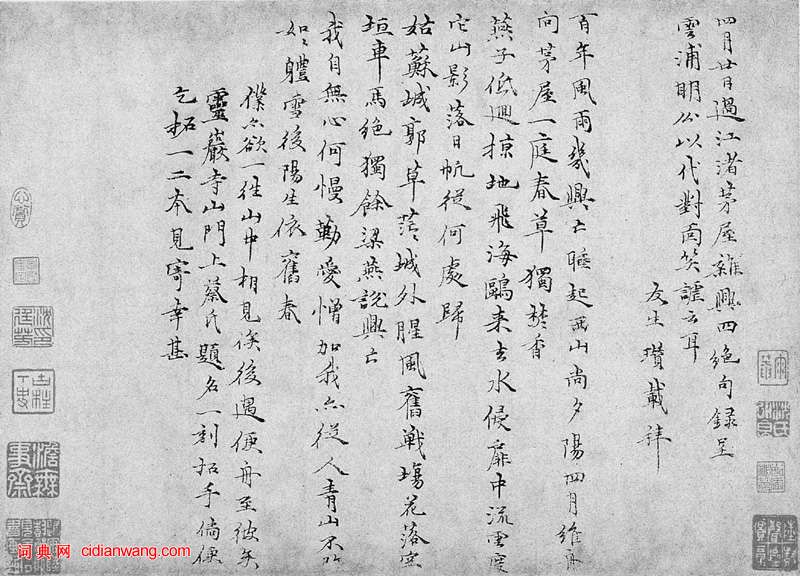 四月廿日過江渚茅屋雜興四絕句錄呈
雲浦明公以代對面笑謔云耳
友生瓚載拜
百年風雨幾興亡睡起西山尚夕陽四月維舟
向茅屋一庭春草獨焚香
燕子低迴掠地飛海鷗來去水侵扉中流雲度
它山影落日帆從何處歸
姑蘇城郭草茫茫城外腥風舊戰場花落空
垣車馬絕獨餘梁燕說興亡
我自無心何慢勤愛憎加我亦從人青山不改
如如體雪後陽生依舊春
僕亦欲一往山中相見俟後遇便舟至彼矣
靈巖寺山門上蔡氏題名一刻拓手倘便
乞拓一二本見寄幸甚
词典网 cidianwang.com